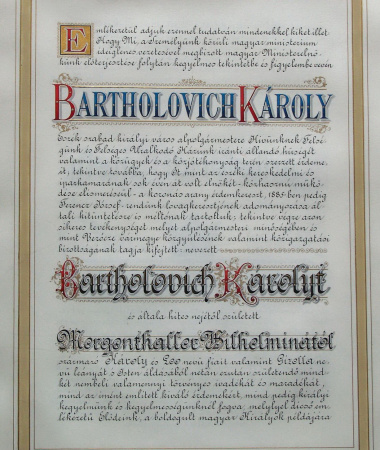 Emlékezetül adjuk ezennel tudatván mindenekkel kiket illet
Hogy Mi, a személyünk körüli magyar ministerium
ideiglenes vezetésével megbizott magyar Ministerelnö-
künk előterjesztése folytán kegyelmes tekintetbe és figyelembe vevén
BARTHOLOVICH KÁROLY
Eszék szabad királyi város alpolgármestere Hívünknek Felsé-
günk és Felséges Uralkodó Házunk iránti állandó hűségét
valamint a közügyek és a közjótékonyság terén szerzett érdeme-
it, tekintve továbbá, hogy Őt mint az eszéki kereskedelmi és
iparkamarának sok éven át volt elnökét - közhasznú mükö-
dése elismeréséül - a koronás arany érdemkereszt, 1885-ben pedig
Ferencz József-rendünk lovagkeresztjének adományozása ál-
tali kitüntetésre is méltónak tartottuk; tekintve végre azon
sikeres tevékenységet melyet alpolgármesteri minőségében és
mint Verőcze vármegye közgyülésének valamint közigazgatási
bizottságának tagja kifejtett: nevezett
Bartholovich Károlyt
és általa hites nejétől született
Morgenthaller Wilhelminától
származó Károly és Leo nevü fiait valamint Gizella ne-
vü leányát s Isten áldásából netán ezután születendő mind-
két nembeli valamennyi törvényes ivadékát és maradékát,
mind az imént említett kiváló érdemekért mind pedig királyi
kegyelmünk és kegyelmességünknél fogva, melylyel dicső em-
lékezetű Elődeink, a boldogult magyar Királyok példájára